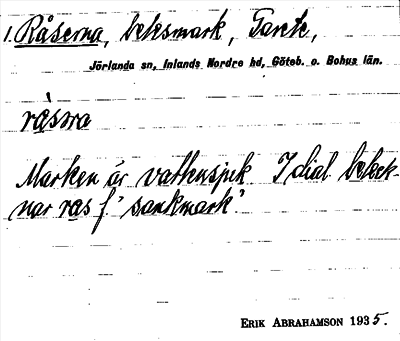 1. Råserna, betesmark, Tarete,
Jörlanda sn, Inlands Nordre hd, Göteb. o. Bohus län.
råsra
Marken är vattensjuk I dial. beteck-
nar ras f. 'sankmark'
ERIK ABRAHAMSON 1935.